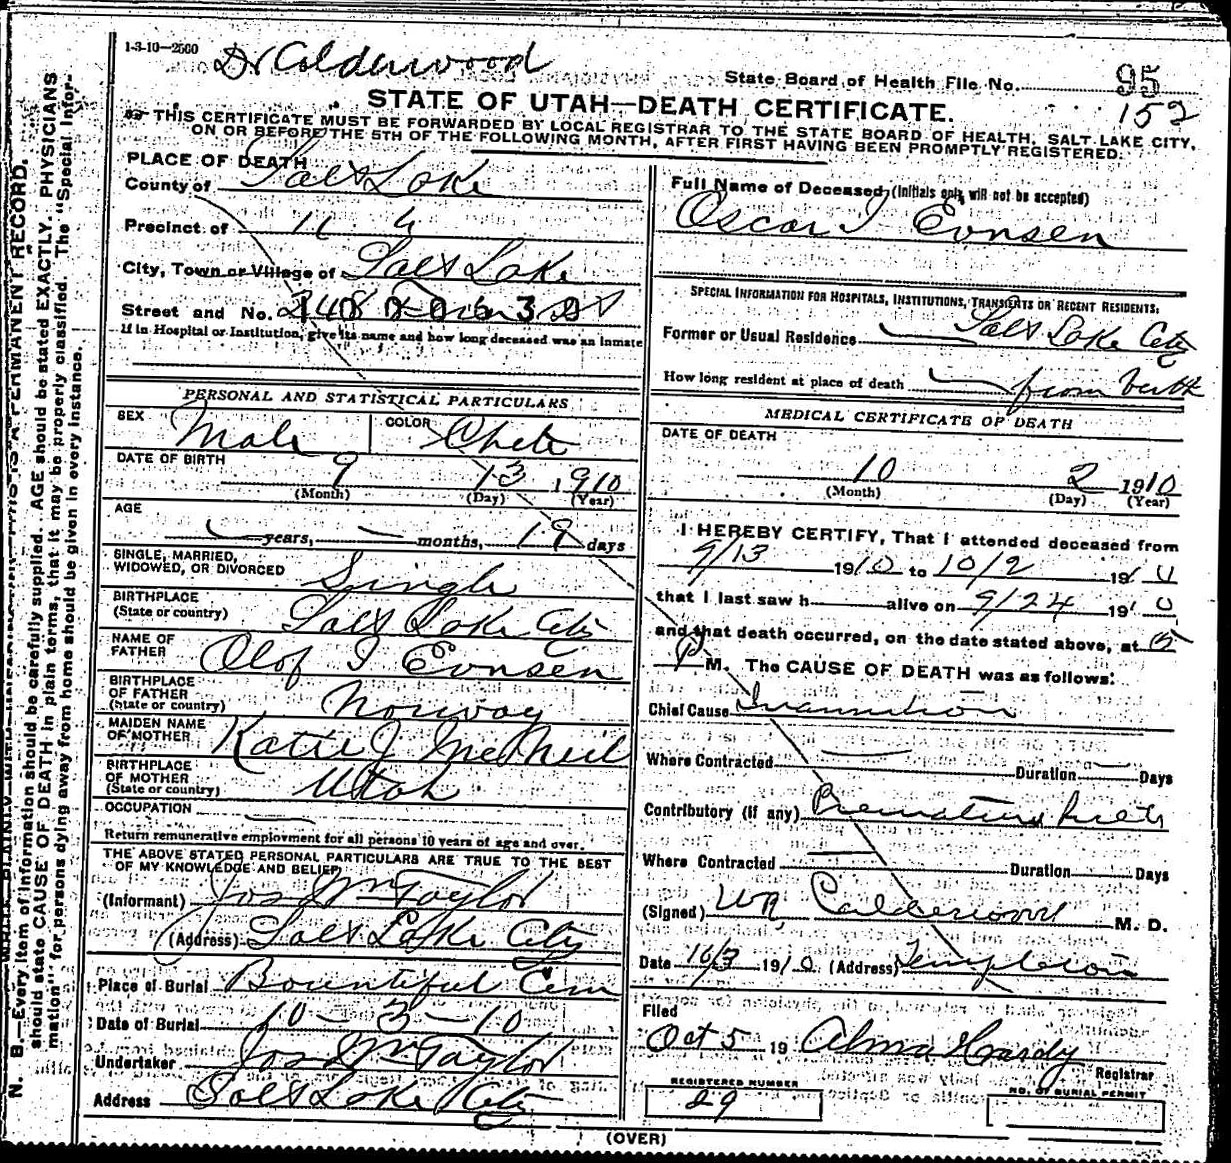 1-3-10—2500
Dr Calderwood
State Board of Health File No. 95
152
STATE OF UTAH—DEATH CERTIFICATE.
THIS CERTIFICATE MUST BE FORWARDED BY LOCAL REGISTRAR TO THE STATE BOARD OF HEALTH, SALT LAKE CITY,
ON OR BEFORE THE 5TH OF THE FOLLOWING MONTH, AFTER FIRST HAVING BEEN PROMPTLY REGISTERED.
PLACE OF DEATH
County of Salt Lake
Precinct of
City, Town or Village of Salt Lake
Street and No.
If in Hospital or Institution, give its name and how long deceased was an inmate
PERSONAL AND STATISTICAL PARTICULARS
SEX Male COLOR
DATE OF BIRTH 9 13 1910
(Month) (Day) (Year)
AGE
years, months, 19 days
SINGLE, MARRIED,
WIDOWED, OR DIVORCED Single
BIRTHPLACE
(State or country) Salt Lake City
NAME OF
FATHER Olof I Evensen
BIRTHPLACE
OF FATHER
(State or country) Norway
MAIDEN NAME
OF MOTHER Katie J McNeil
BIRTHPLACE
OF MOTHER
(State or country) Utah
OCCUPATION
Return remunerative employment for all persons 10 years of age and over.
THE ABOVE STATED PERSONAL PARTICULARS ARE TRUE TO THE BEST
OF MY KNOWLEDGE AND BELIEF
(Informant) Jos Wm Taylor
(Address) Salt Lake City
Place of Burial Bountiful Cem
Date of Burial 10-3-10
Undertaker Jos Wm Taylor
Address Salt Lake City
Full Name of Deceased (Initials only will not be accepted)
Oscar I Evensen
SPECIAL INFORMATION FOR HOSPITALS, INSTITUTIONS, TRANSIENTS OR RECENT RESIDENTS:
Former or Usual Residence Salt Lake City
How long resident at place of death from birth
MEDICAL CERTIFICATE OF DEATH
DATE OF DEATH
10 2 1910
(Month) (Day) (Year)
I HEREBY CERTIFY, That I attended deceased from
9/13 1910 to 10/2 1910
that I last saw h alive on 9/24 1910
and that death occurred, on the date stated above, at 5
P M. The CAUSE OF DEATH was as follows:
Chief Cause Inannition
Where Contracted Duration Days
Contributory (if any) Premature birth
Where Contracted Duration Days
(Signed) Calderwood M. D.
Date 10/3 1910 (Address) Templeton
Filed
Oct 5 19 Alma Hardy
Registrar
REGISTERED NUMBER
29
NO. OF BURIAL PERMIT
(OVER)
N. B.—Every item of information should be carefully supplied. AGE should be stated EXACTLY. PHYSICIANS
should state CAUSE OF DEATH in plain terms, that it may be properly classified. The "Special Infor-
mation" for persons dying away from home should be given in every instance.